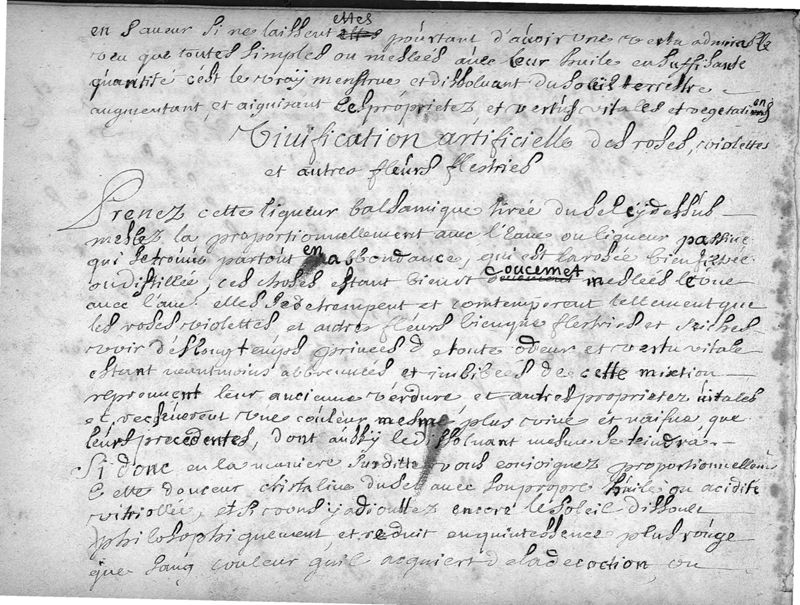 en saveur si ne laissent elles pourtant d'avoir une vertu admirable
veu que toutes simples ou meslées avec leur huile en suffisante
quantité c'est le vray menstrue et dissoluant du soleil terrestre
augmentant, et aiguisant ses proprietez, et vertus vitales et vegetatives
Vivification artificielle des roses, violettes
et autres fleurs flestries
Prenez cette liqueur balsamique tirée du sel cy dessus
meslez la proportionnellement avec l'eaue ou liqueur
qui se trouve partout en abbondance, qui est la rosée bien
ou distillée, ces choses estant bien et doucemet meslées l'une
avec l'autre elles se detrempent et contemperent tellement que
les roses violettes et autres fleurs bien que flestries et seiches
voir dés long temps privées de toute odeur et vertu vitale
estant neantmoins abbreuvées et imbibées de cette mixtion
reprennent leur ancienne verdure et autres proprietez vitales
et recseuerent une couleur mesme plus vive et naifve que
leurs precedentes, dont aussy le dissoluant mesme se teindra
Si donc en la maniere susditte vous conjoignez proportionnellem
cette douceur cristaline du sel avec son propre huile ou acidité
vitriollée, et si vous y adiouttez encore le soleil dissout
philosophiquement, et reduit en quintessence plus rouge
que sang couleur qu'il acquiert de la decoction, ou